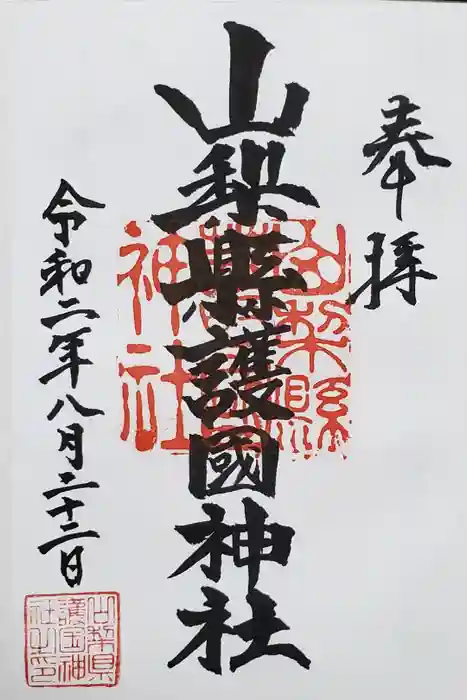 奉拝
山梨縣護國神社
山梨縣護國神社
令和二年八月二十二日
山梨県護国神社之印